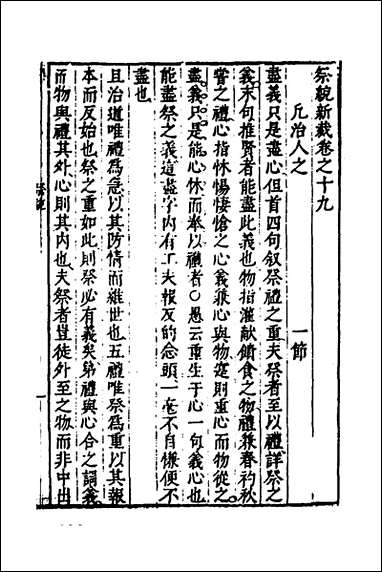 祭統新裁卷之十九
凡治人之　　　一節
盡義只是盡心但首四句叙祭禮之重夫祭者至以禮詳祭之
義末句推賢者能盡此義也物指灌獻饋食之物禮兼春礿秋
嘗之禮心指怵惕悽愴之心義兼心與物疏則重心而物從之
盡義只是能心怵而奉以禮者○愚云重生于心一句義心也
能盡祭之義這盡字內有工夫報反的念頭一毫不自慊便不
盡也
且治道唯禮為急以其防情而維世也五禮唯祭為重以其報
本而反始也祭之重如此則祭必有義矣第禮與心合之謂義
而物與禮其外心則其內也夫祭者豈徒外至之物而非中出
祭統
一